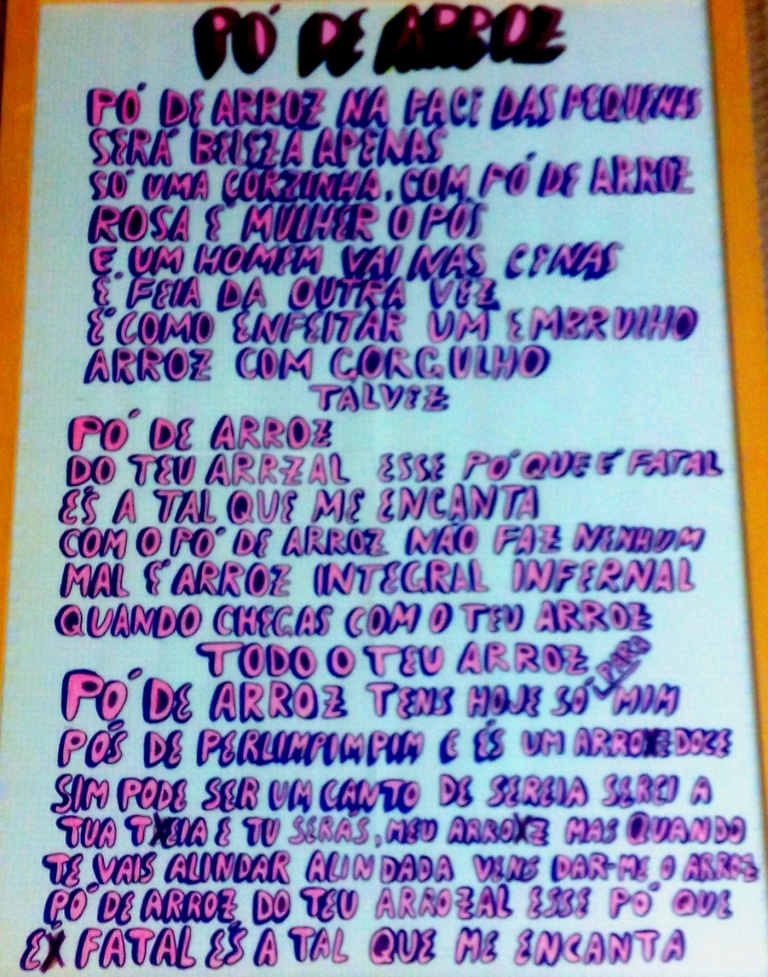 PÓ DE ARROZ
PÓ DE ARROZ NA FACE DAS PEQUENAS
SERÁ BELEZA APENAS
SÓ UMA CORZINHA, COM PÓ DE ARROZ
ROSA É MULHER O PÓS
E UM HOMEM VAI NAS CENAS
É FEIA DA OUTRA VEZ
É COMO ENFEITAR UM EMBRULHO
ARROZ COM GORGULHO
TALVEZ
PÓ DE ARROZ
DO TEU ARRZAL ESSE PÓ QUE É FATAL
ÉS A TAL QUE ME ENCANTA
COM O PÓ DE ARROZ NÃO FAZ NENHUM
MAL É ARROZ INTEGRAL INFERNAL
QUANDO CHEGAS COM O TEU ARROZ
TODO O TEU ARROZ
PÓ DE ARROZ TENS HOJE SÓ PARA MIM
PÓS DE PERLIMPIMPIM E ÉS UM ARROZ DOCE
SIM PODE SER UM CANTO DE SEREIA SEREI A
TUA TEIA E TU SERÁS, MEU ARROZ MAS QUANDO
TE VAIS ALINDAR ALINDADA VENS DAR-ME O ARROZ
PÓ DE ARROZ DO TEU ARROZAL ESSE PÓ QUE
É FATAL ÉS A TAL QUE ME ENCANTA